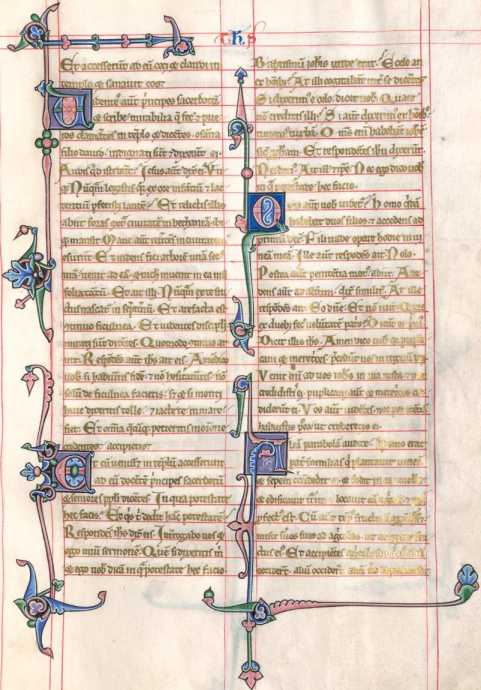 Et accesserunt ad eum ceci et claudi in
templo et sanauit eos
Uidentes aut principes sacerdotum
et scribe mirabilia q fec et pue
ros clamantes in templo et dicentes osanna
filio dauid indignati sunt et dixerunt ei
Audis qd isti dicunt Ihesus aut dix eis Vtiq
Nunquam legistis q ex ore infantium et lac
tentium pfecisti laudem Et relictis illis
abiit foras extra ciuitatem in bethaniam ibi
q mansit Mane aut reuertens in ciuitatem
esuriit Et uidens fici arborem unam secus
uiam uenit ad eam et nichil inuenit in ea nisi
folia tantum Et ait illi Nunquam ex te fru
ctus nascatur in sempiternum Et arefacta est
continuo ficulnea Et uidentes discipuli
mirati sunt dicentes Quomodo continuo
aruit Respondens aut ihs ait eis Amen dico
uob si habueritis fidem et non hesitaueritis non
solum de ficulnea facietis sed et si monti
huic dixeritis tolle et iacta te in mare
fiet Et omnia quecumq petieritis in oratione
credentes accipietis
Et cum uenisset in templum accesserunt
ad eum docentem principes sacerdotum
et seniores ppli dicentes In qua potestate
hec facis Et quis t dedit hanc potestatem
Respondens ihs dix eis Interrogabo uos et
ego unum sermonem Quem si dixeritis m
et ego uob dicam in q potestate hec facio
ihs
Baptismum iohis unde erat E celo an
ex hominibus At illi cogitabant inter se dicentes
Si dixerimus e celo dicet nob Quare
non credidistis illi Si aut dixerimus ex hominibus
timemus turbam Omnes enim habebant iohem
sic prophetam Et respondentes ihu dixerunt
Nescimus Ait illis et ipse Nec ego dico uob
in q potestate hec facio
Quid aut uob uidetur Homo quidam
habebat duos filios et accedens ad
primum dix Fili uade opare hodie in ui
nea mea Ille aut respondens ait Nolo
Postea aut penitentia motus abiit Acce
dens aut ad alterum dix similiter At ille
respondens ait Eo dne Et non iuit Quis
ex duob fecit uoluntatem patris Dicunt ei primus
Dicit illis ihs Amen dico uob q publi
cani et meretrices precedent uos in regnum di
Venit enim ad uos iohes in uia iusticie et non
credidistis ei publicani aut et meretrices cre
diderunt ei Vos aut uidentes nec penitentiam
habuistis postea ut crederetis ei
Aliam parabolam audite Homo erat
pater familias q plantauit uineam
et sepem circumdedit ei et fodit in ea torcular
et edificauit turrim et locauit eam agricolis et
pegre pfectus est Cum aut tempus fructuum appropinquasset
misit seruos suos ad agricolas ut acciperent fru
ctus eius Et agricole apprehensis seruis eius alium
ceciderunt alium occiderunt alium uero lapidauerunt